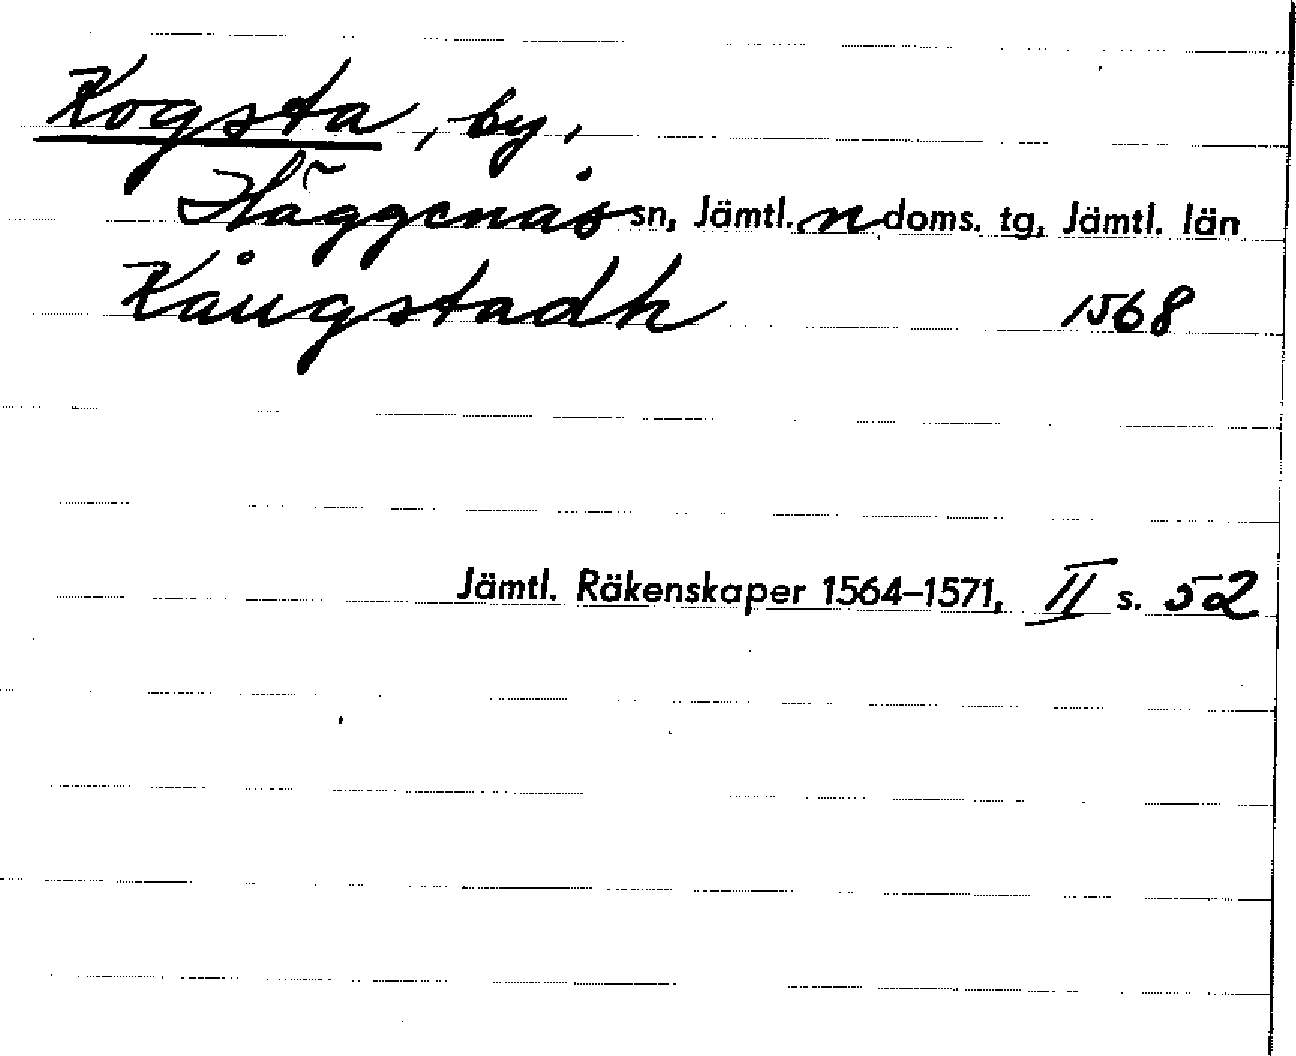 Kogsta, by,
Häggenås sn, Jämtl. n doms. tg, Jämtl. län
Kåugstadh 1568
Jämtl. Räkenskaper 1564–1571, II s. 52